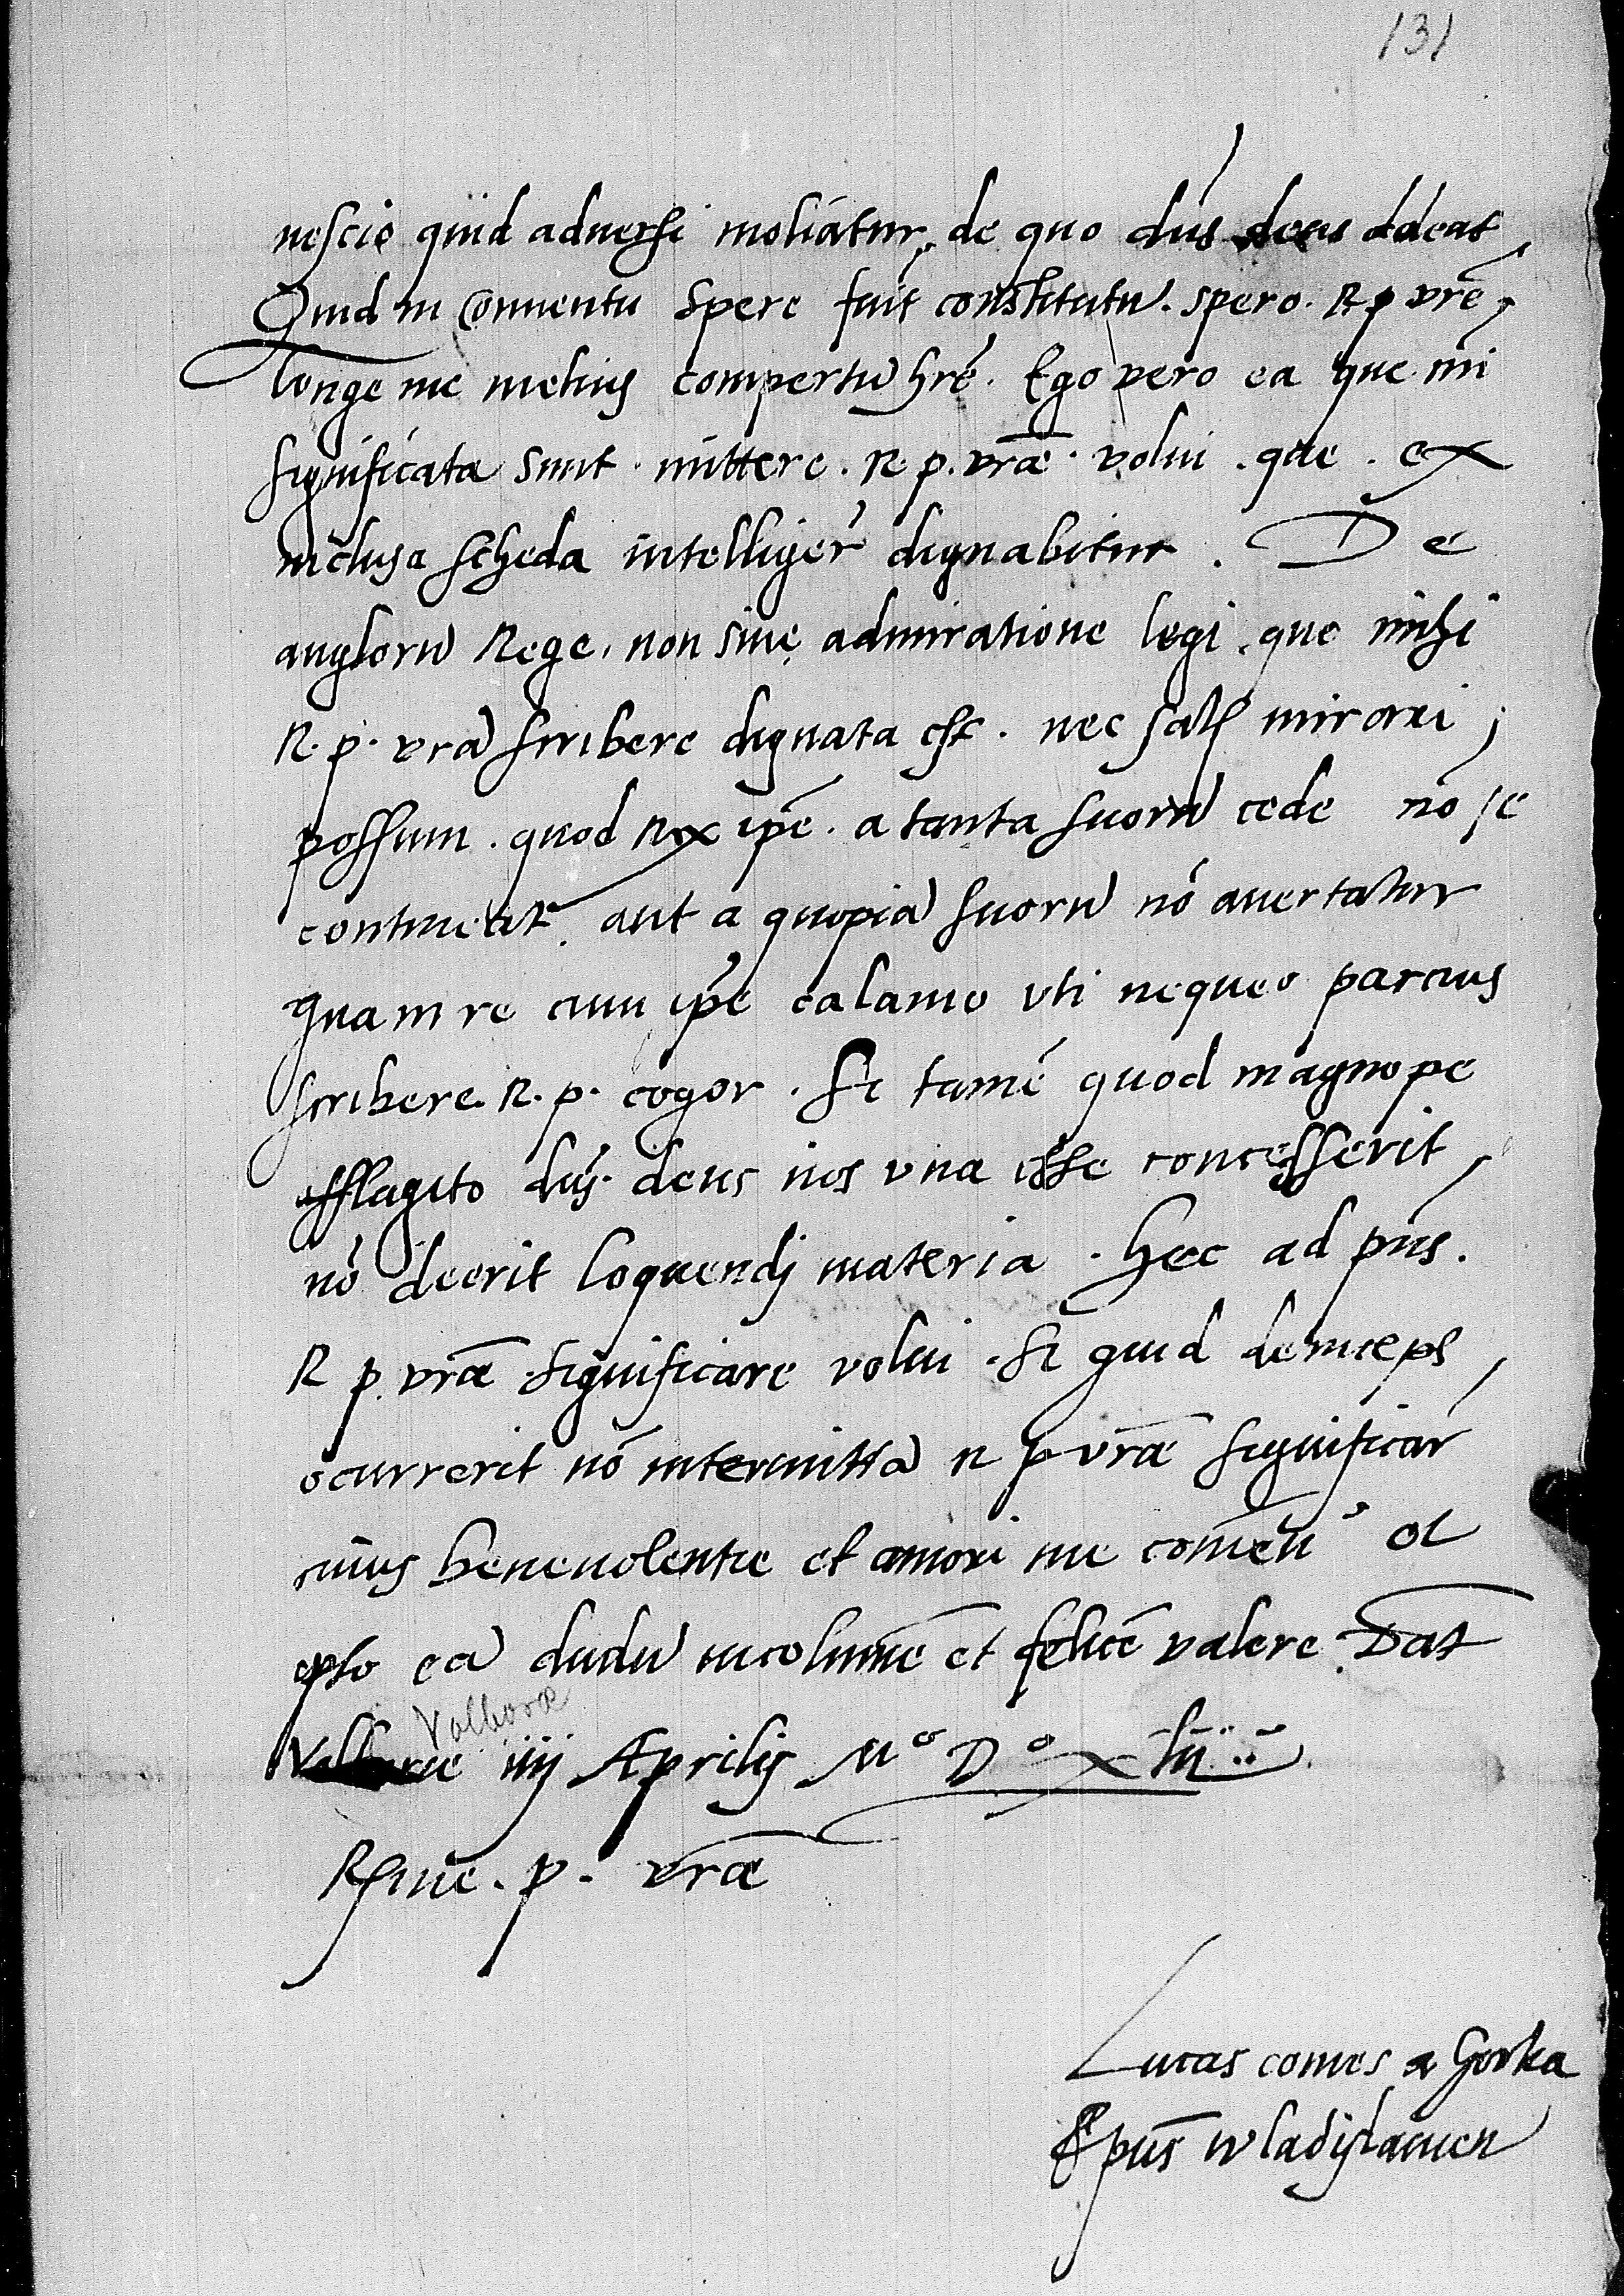 131
nescio quid aduersi moliatur, de quo dñs deus videat
Quid in Conuentu Spere fuit constitutũ. spero. R p vrẽ,
longe me melius compertũ hrẽ. Ego vero ea que mi
significata sunt. mittere. R. p. vrãe. volui. que. ex
inclusa scheda intelligerẽ dignabitur. De
anglorũ Rege. non sine admiratione legi. que mihi
R. p. vrã scribere dignata est. nec satis mirari,
possum. quod Rex ipẽ. a tanta suorũ cede nõ se
contineat. aut a quopiã suorũ nõ auertatur
Quam re cum ipẽ calamo vti nequeo parcius
scribere. R. p. cogor. Si tamẽ quod magnope
efflagito dñs. deus nos vna esse concesserit,
nõ deerit loquendi materia. hec ad pñs.
R p. vrãe significare volui. Si quid deinceps,
ocurrerit nõ intermittã R p vrãe significar
cuius beneuolentie et amori me comẽn et
opto eã diudiu incolumẽ et felicẽ valere. Dat
Valborae
Valborie iiij Aprilis Mº Dº xlii
Rsme. p. vrãe
Lucas comes a Gorka
Epũs wladislauien